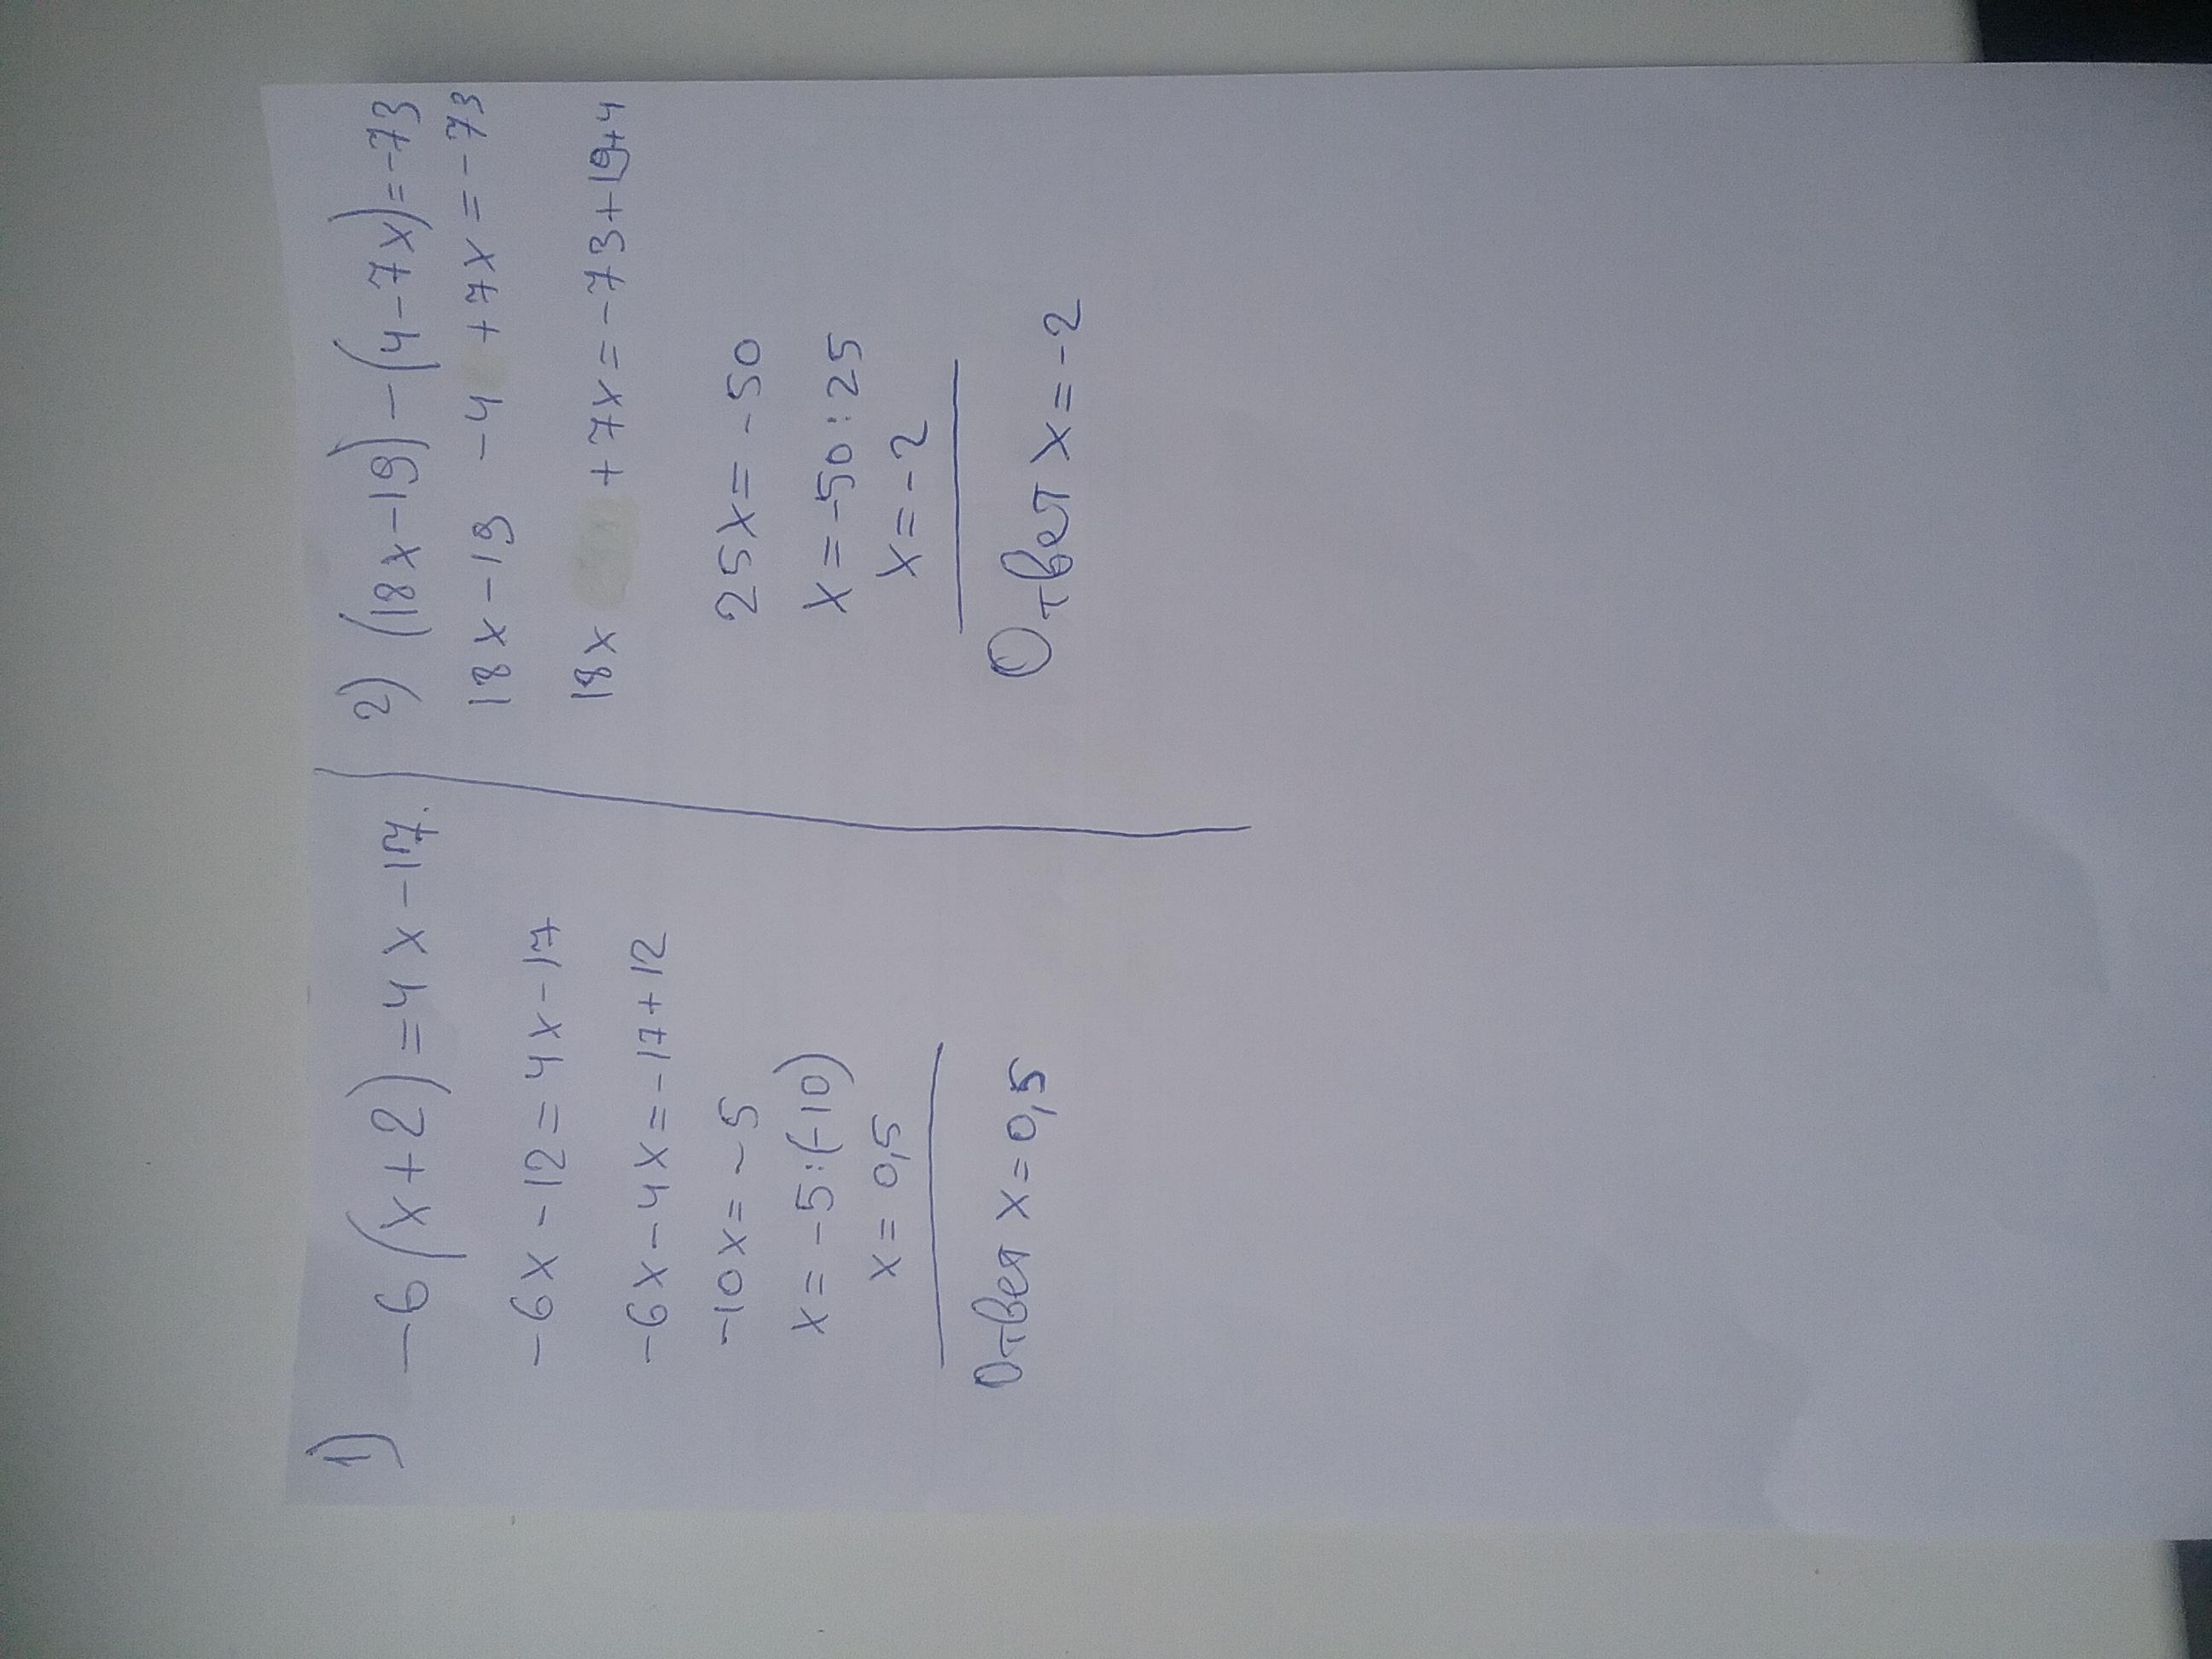 1) -6(x+2)=4x-17.
-6x-12=4x-17
-6x-4x=-17+12
-10x=-5
x=-5:(-10)
x=0,5
Ответ x=0,5
2) (18x-19)-(4-7x)=-73
18x-19 -4 +7x=-73
18x +7x=-73+19+4
25x=-50
x=-50:25
x=-2
Ответ x=-2